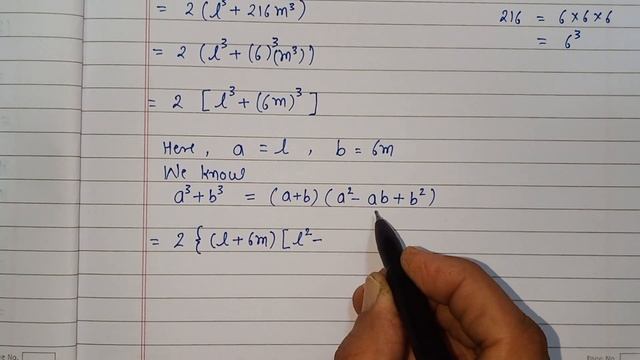 = 2 (l³ + 216m³)
216 = 6 × 6 × 6
= 6³
= 2 (l³ + (6)³(m³))
= 2 [l³ + (6m)³]
Here, a = l, b = 6m
We know
a³ + b³ = (a+b) (a² - ab + b²)
= 2 { (l + 6m) [ l² -
No.
Page No.